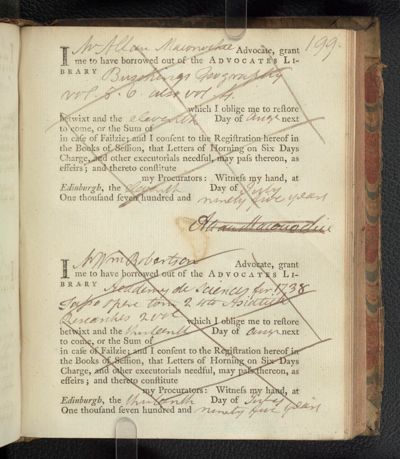 199.
I Mr Allan Maconochie Advocate, grant
me to have borrowed out of the ADVOCATES LI-
BRARY Buschings Geography
vol. 5. 6 also vol 4.
which I oblige me to reſtore
betwixt and the eleventh Day of Augt next
to come, or the Sum of
in caſe of Failzie; and I conſent to the Regiſtration hereof in
the Books of Seſſion, that Letters of Horning on Six Days
Charge, and other executorials needful, may paſs thereon, as
effeirs; and thereto conſtitute
my Procurators: Witneſs my hand, at
Edinburgh, the eleventh Day of July
One thouſand ſeven hundred and ninety five years
Allan Maconochie
I Mr Wm Robertson Advocate, grant
me to have borrowed out of the ADVOCATES LI-
BRARY Academy de Sciences for 1738
opere tom 2 4to Asiatick
Researches 2 vol which I oblige me to reſtore
betwixt and the thirteenth Day of Augt next
to come, or the Sum of
in caſe of Failzie; and I conſent to the Regiſtration hereof in
the Books of Seſſion, that Letters of Horning on Six Days
Charge, and other executorials needful, may paſs thereon, as
effeirs; and thereto conſtitute
my Procurators: Witneſs my hand, at
Edinburgh, the thirteenth Day of July
One thouſand ſeven hundred and ninety five years